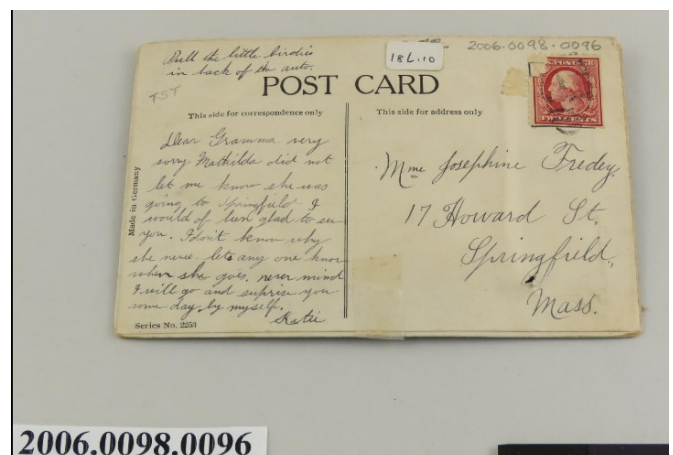 Pull the little birdies
in back of the auto.
18L.10
2006.0098.0096
TST
POST CARD
This side for correspondence only
This side for address only
Made in Germany
Dear Gramma very
sorry Mathilda did not
let me know she was
going to Springfield I
would of bin glad to see
you. I don't know why
she never lets any one know
when she goes. never mind
I will go and suprise you
some day by myself.
Katie
Series No. 2253
POSTAGE
TWO CENTS
Mme Josephine Fredey,
17 Howard St.
Springfield,
Mass.
2006.0098.0096